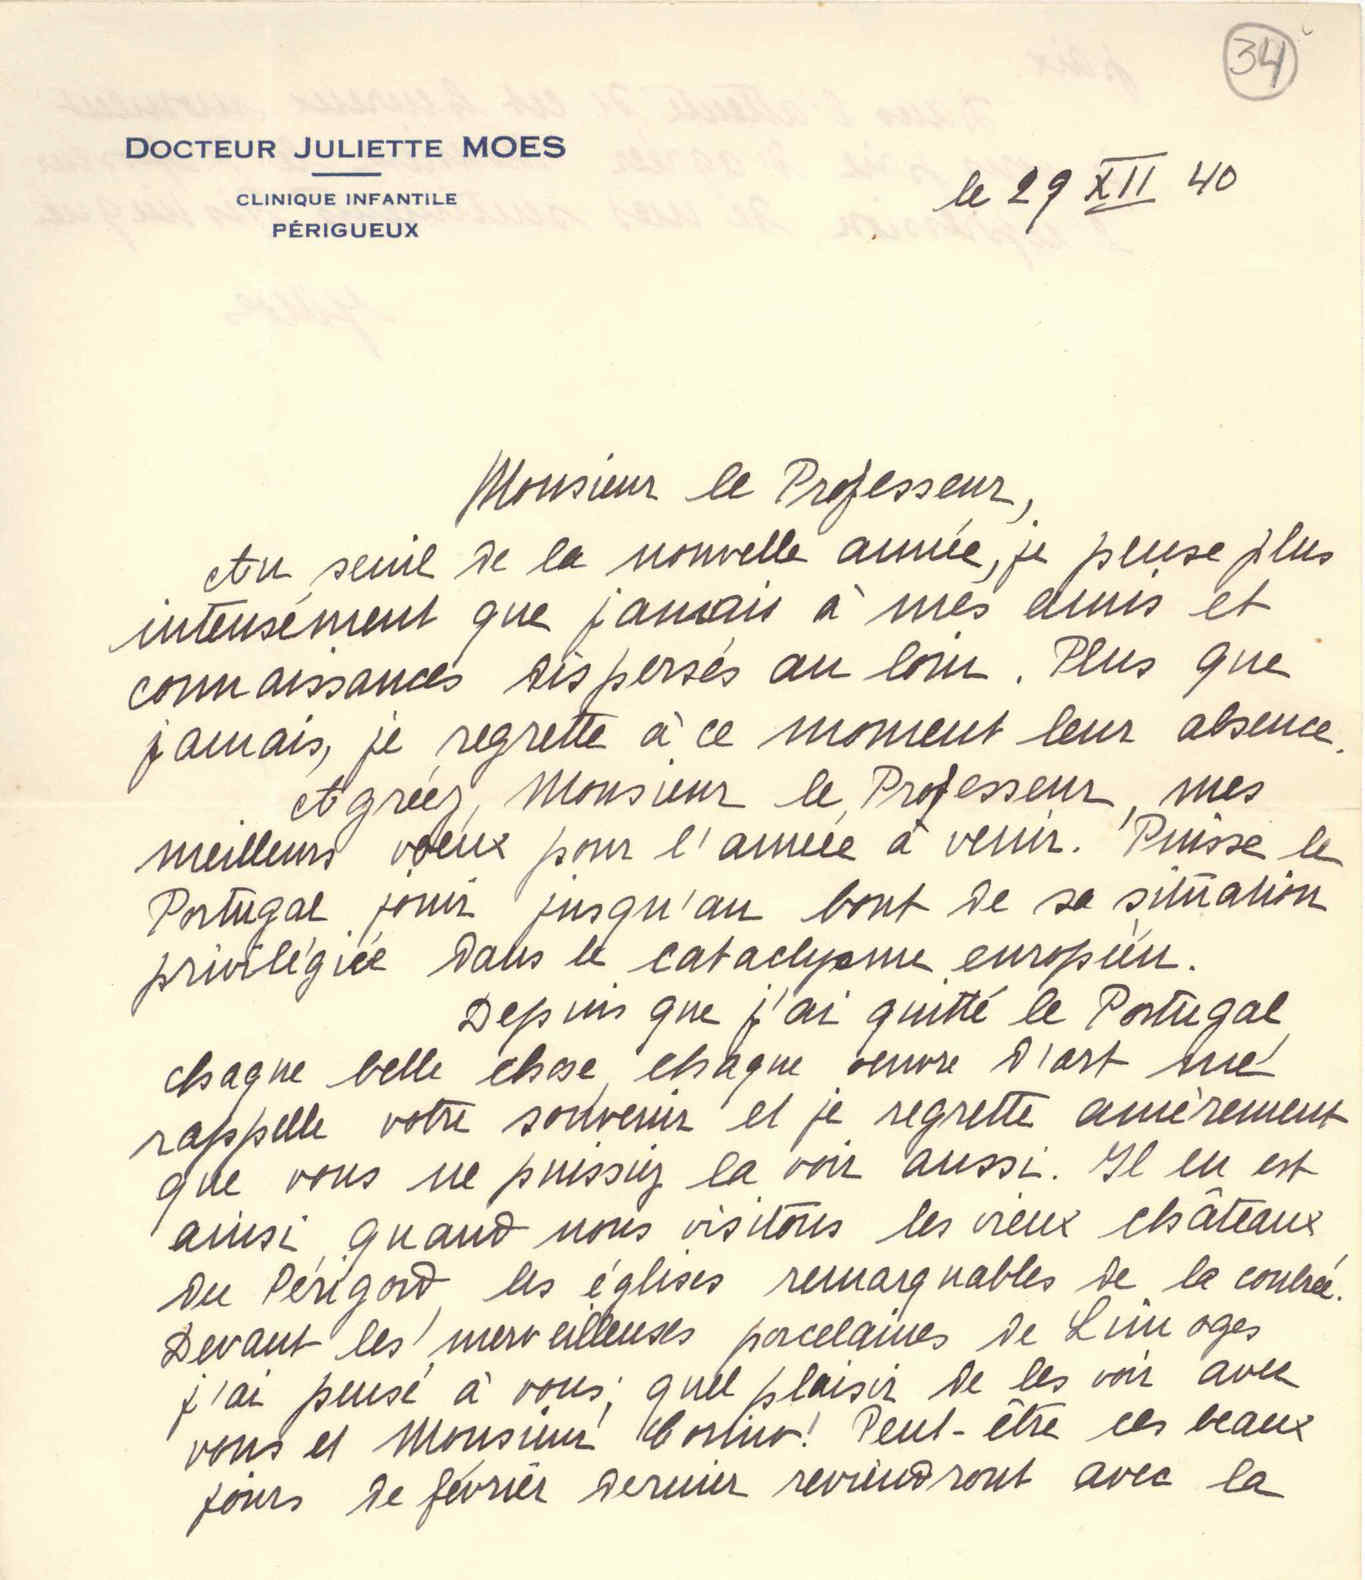 34
DOCTEUR JULIETTE MOES
CLINIQUE INFANTILE
PÉRIGUEUX
le 29 XII 40
Monsieur le Professeur,
Au seuil de la nouvelle année, je pense plus
intensément que jamais à mes amis et
connaissances dispersés au loin. Plus que
jamais, je regrette à ce moment leur absence.
Agréez, Monsieur le Professeur, mes
meilleurs voeux pour l'année à venir. Puisse le
Portugal jouir jusqu'au bout de sa situation
privilégiée dans le cataclysme européen.
Depuis que j'ai quitté le Portugal
chaque belle chose, chaque oeuvre d'art me
rappelle votre souvenir et je regrette amèrement
que vous ne puissiez la voir aussi. Il en est
ainsi quand nous visitons les vieux châteaux
du Périgord, les églises remarquables de la contrée.
Devant les merveilleuses porcelaines de Limoges
j'ai pensé à vous; quel plaisir de les voir avec
vous et Monsieur ! Peut-être ces beaux
jours de février dernier reviendront avec la